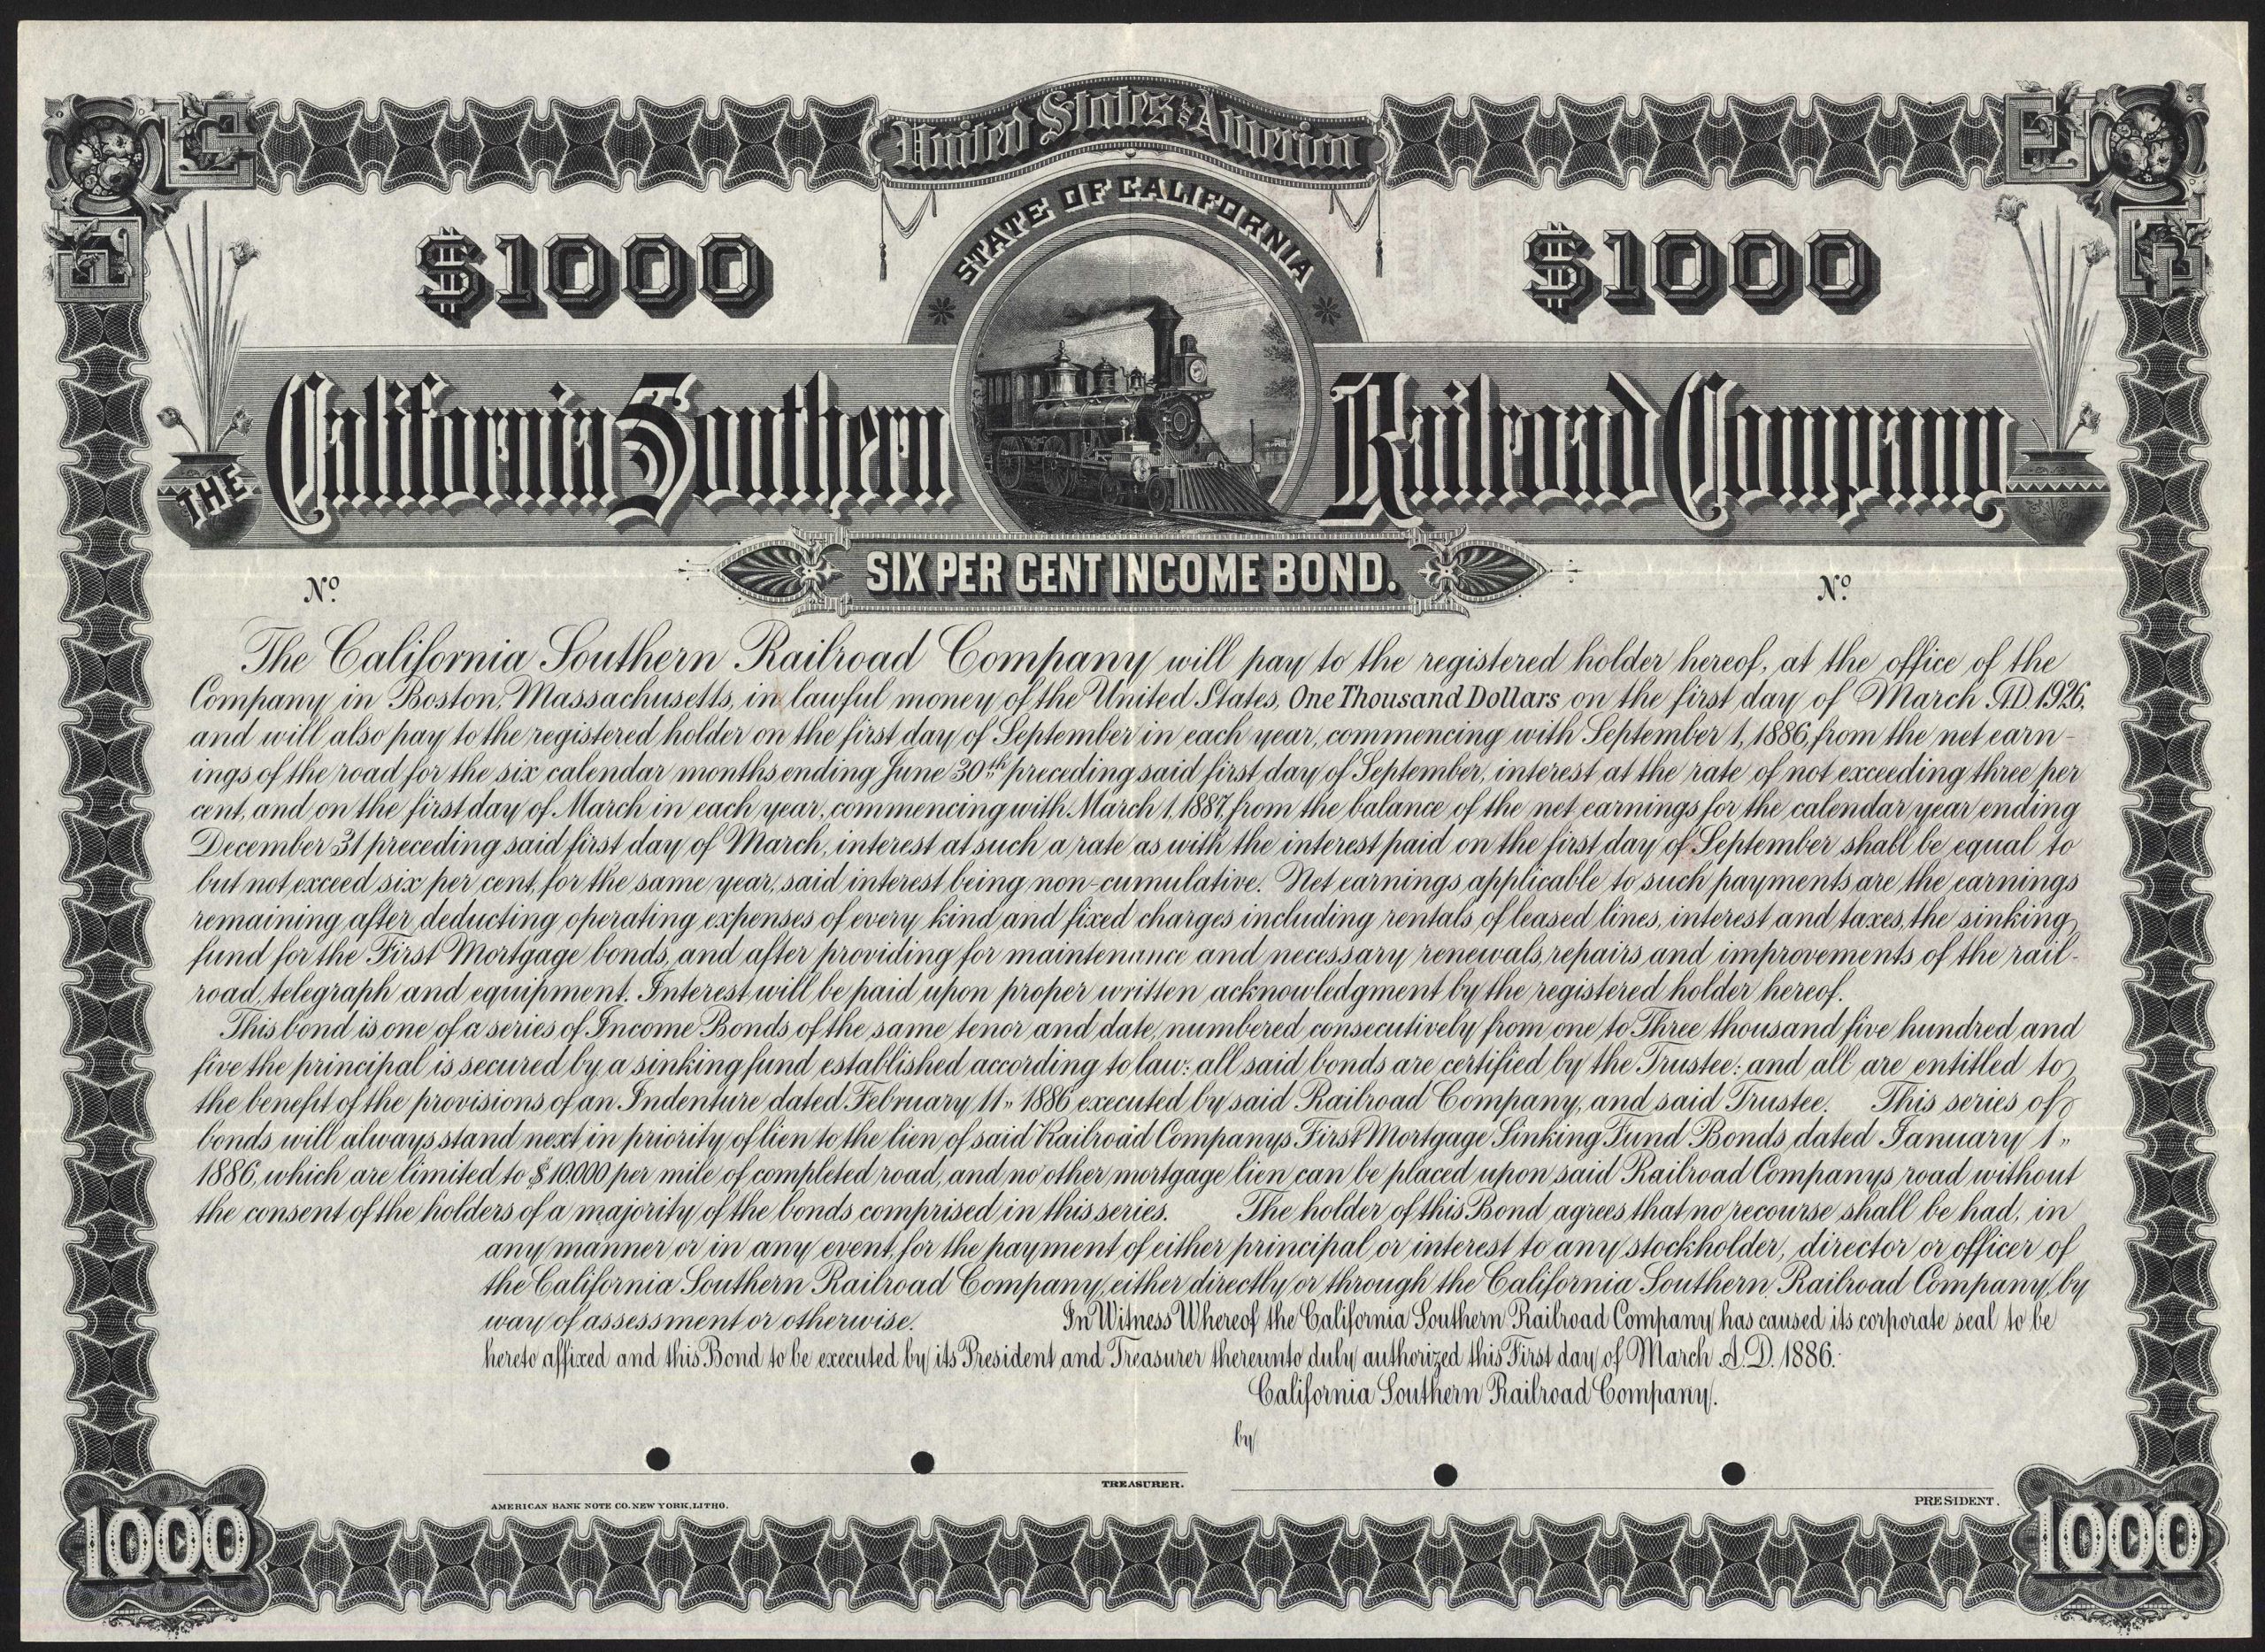 United States of America
STATE OF CALIFORNIA
$1000 $1000
THE California Southern Railroad Company
SIX PER CENT INCOME BOND.
Nº Nº
The California Southern Railroad Company will pay to the registered holder hereof, at the office of the
Company in Boston, Massachusetts, in lawful money of the United States, One Thousand Dollars on the first day of March A.D. 1926,
and will also pay to the registered holder on the first day of September in each year, commencing with September 1, 1886, from the net earn-
ings of the road for the six calendar months ending June 30th preceding said first day of September, interest at the rate of not exceeding three per
cent, and on the first day of March in each year, commencing with March 1, 1887, from the balance of the net earnings for the calendar year ending
December 31 preceding said first day of March, interest at such a rate as with the interest paid on the first day of September shall be equal to
but not exceed six per cent, for the same year, said interest being non-cumulative. Net earnings applicable to such payments are the earnings
remaining after deducting operating expenses of every kind and fixed charges including rentals of leased lines, interest and taxes, the sinking
fund for the First Mortgage bonds, and after providing for maintenance and necessary renewals, repairs and improvements of the rail-
road, telegraph and equipment. Interest will be paid upon proper written acknowledgment by the registered holder hereof.
This bond is one of a series of Income Bonds of the same tenor and date, numbered consecutively from one to Three thousand five hundred and
five the principal is secured by a sinking fund established according to law: all said bonds are certified by the Trustee: and all are entitled to
the benefit of the provisions of an Indenture dated February 11" 1886 executed by said Railroad Company, and said Trustee. This series of
bonds will always stand next in priority of lien to the lien of said Railroad Companys First Mortgage Sinking Fund Bonds dated January 1"
1886, which are limited to $10.000 per mile of completed road, and no other mortgage lien can be placed upon said Railroad Companys road without
the consent of the holders of a majority of the bonds comprised in this series. The holder of this Bond agrees that no recourse shall be had, in
any manner or in any event, for the payment of either principal or interest to any stockholder, director or officer of
the California Southern Railroad Company, either directly or through the California Southern Railroad Company, by
way of assessment or otherwise. In Witness Whereof the California Southern Railroad Company has caused its corporate seal to be
hereto affixed and this Bond to be executed by its President and Treasurer thereunto duly authorized this First day of March A.D. 1886.
California Southern Railroad Company.
by
TREASURER.
PRESIDENT.
AMERICAN BANK NOTE CO. NEW YORK, LITHO.
1000 1000